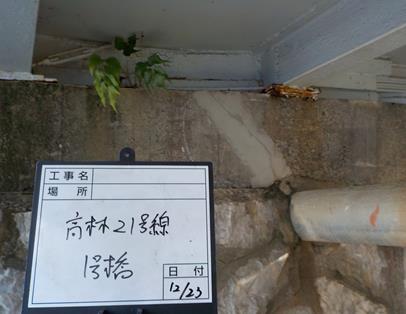 工事名
場所
高林21号線
1号橋
日付
12/23